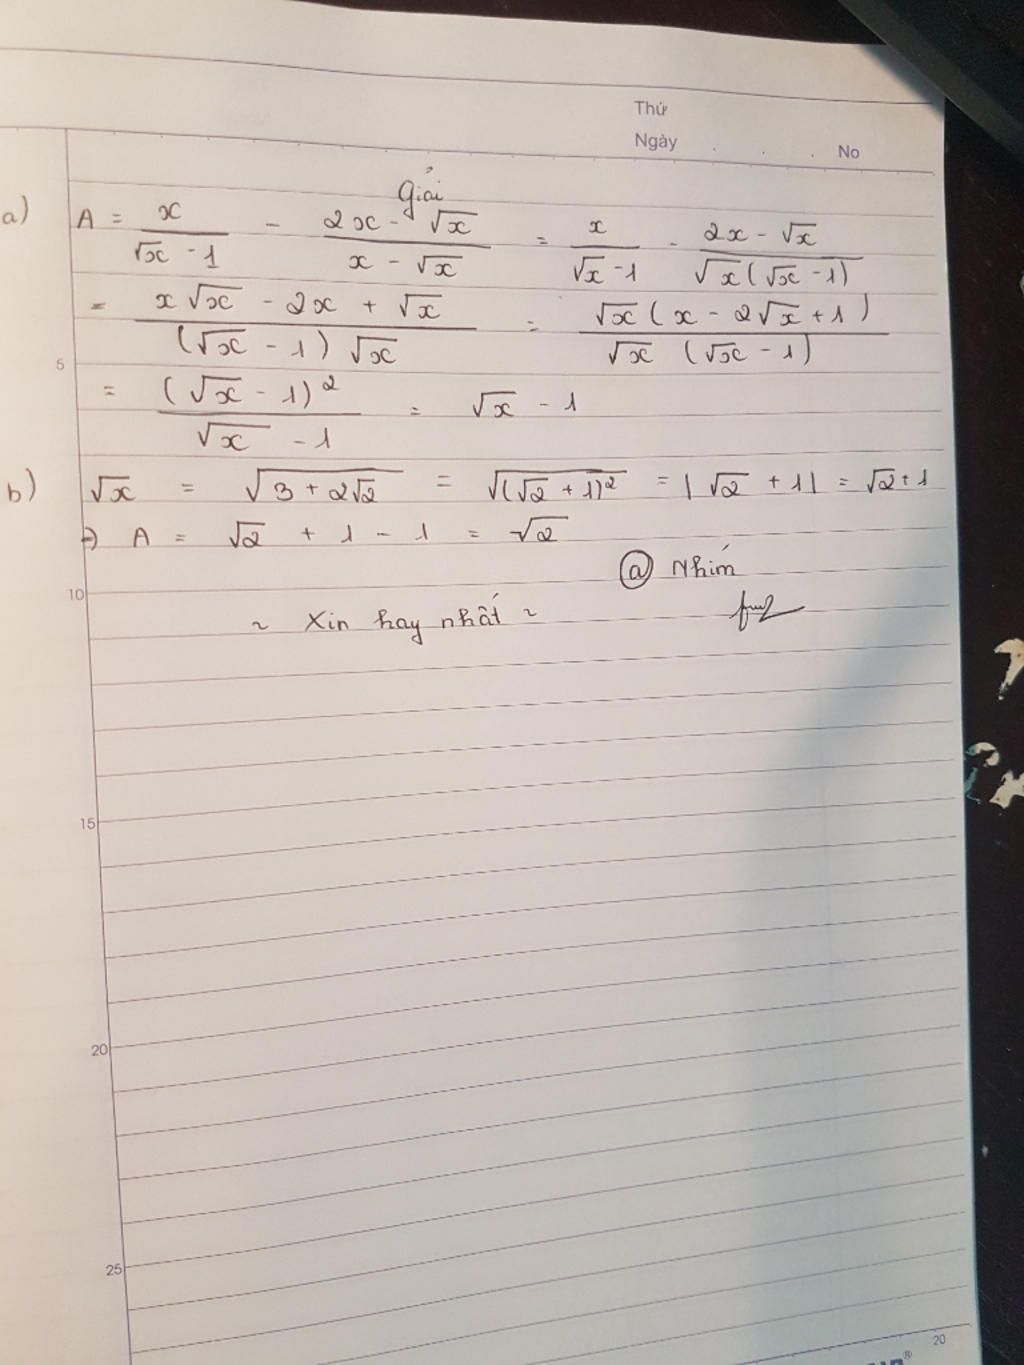 Thứ
Ngày . . . No
Giải
a) A = x/(√x - 1) - (2x - √x)/(x - √x) = x/(√x - 1) - (2x - √x)/(√x(√x - 1))
= (x√x - 2x + √x)/((√x - 1)√x) = √x(x - 2√x + 1)/(√x(√x - 1))
5
= (√x - 1)²/(√x - 1) = √x - 1
b) √x = √(3 + 2√2) = √((√2 + 1)²) = |√2 + 1| = √2 + 1
⇒ A = √2 + 1 - 1 = √2
@ Nhím
10
~ Xin hay nhất ~
15
20
25
20